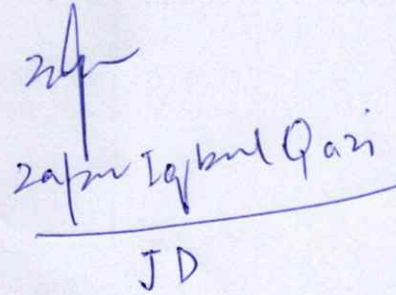 Zafar Iqbal Qazi
JD